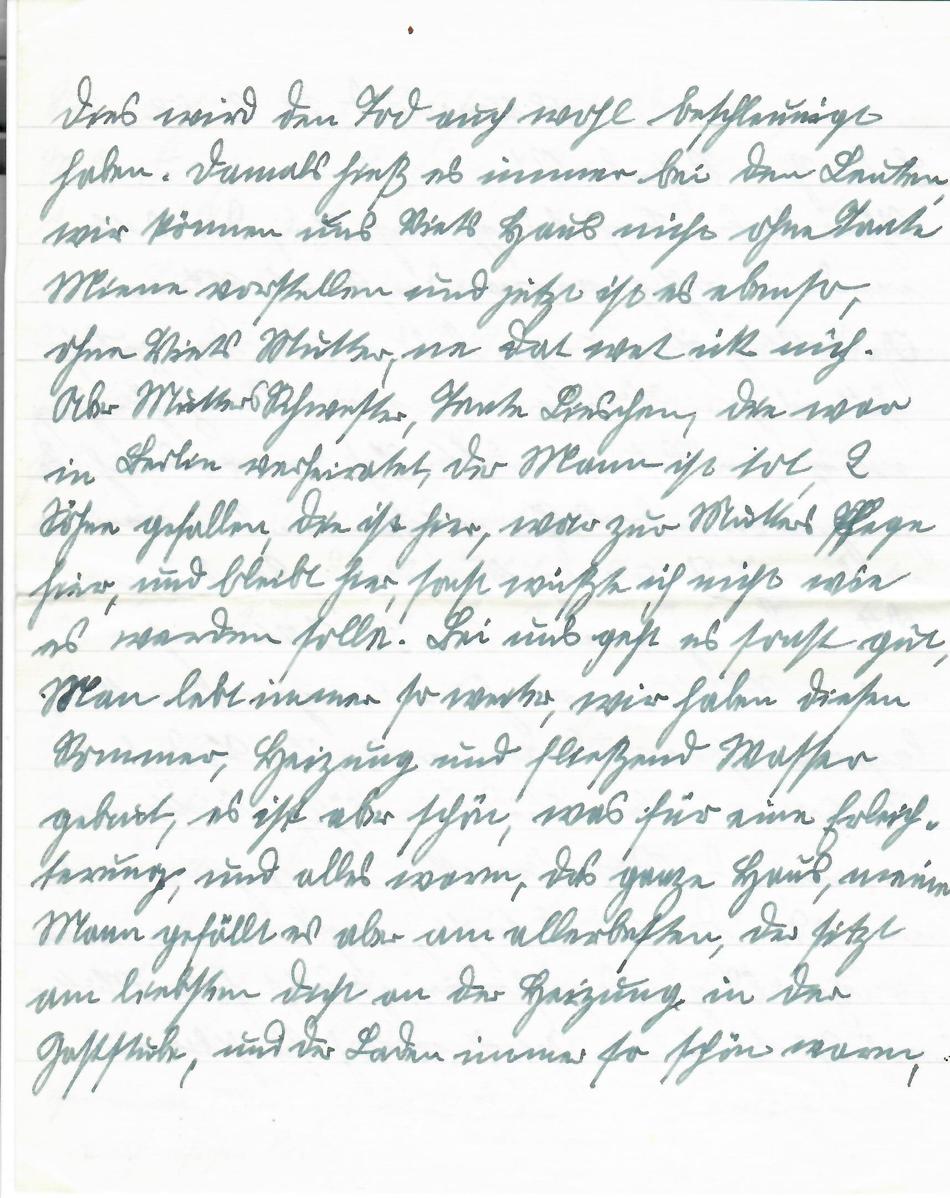 Dies wird den Tod auch wohl beschleunigt
haben. Damals hieß es immer bei den Leuten,
wir können uns Viets Haus nicht ohne Tante
Miene vorstellen und jetzt ist es ebenso,
ohne Viets Mutter, ne dat wet ick nich.
Aber Mutters Schwester, Tante Lieschen, die war
in Berlin verheiratet, der Mann ist tot, 2
Söhne gefallen, die ist hier, war zur Mutters Pflege
hier, und bleibt hier, sonst wüßte ich nicht wie
es werden sollte. Bei uns geht es sonst gut,
Man lebt immer so weiter, wir haben diesen
Sommer, Heizung und fließend Wasser
gebaut, es ist aber schön, was für eine Erleich-
terung, und alles warm, das ganze Haus, meinem
Mann gefällt es aber am allerbesten, der sitzt
am liebsten dicht an der Heizung in der
Gaststube, und der Laden immer so schön warm,